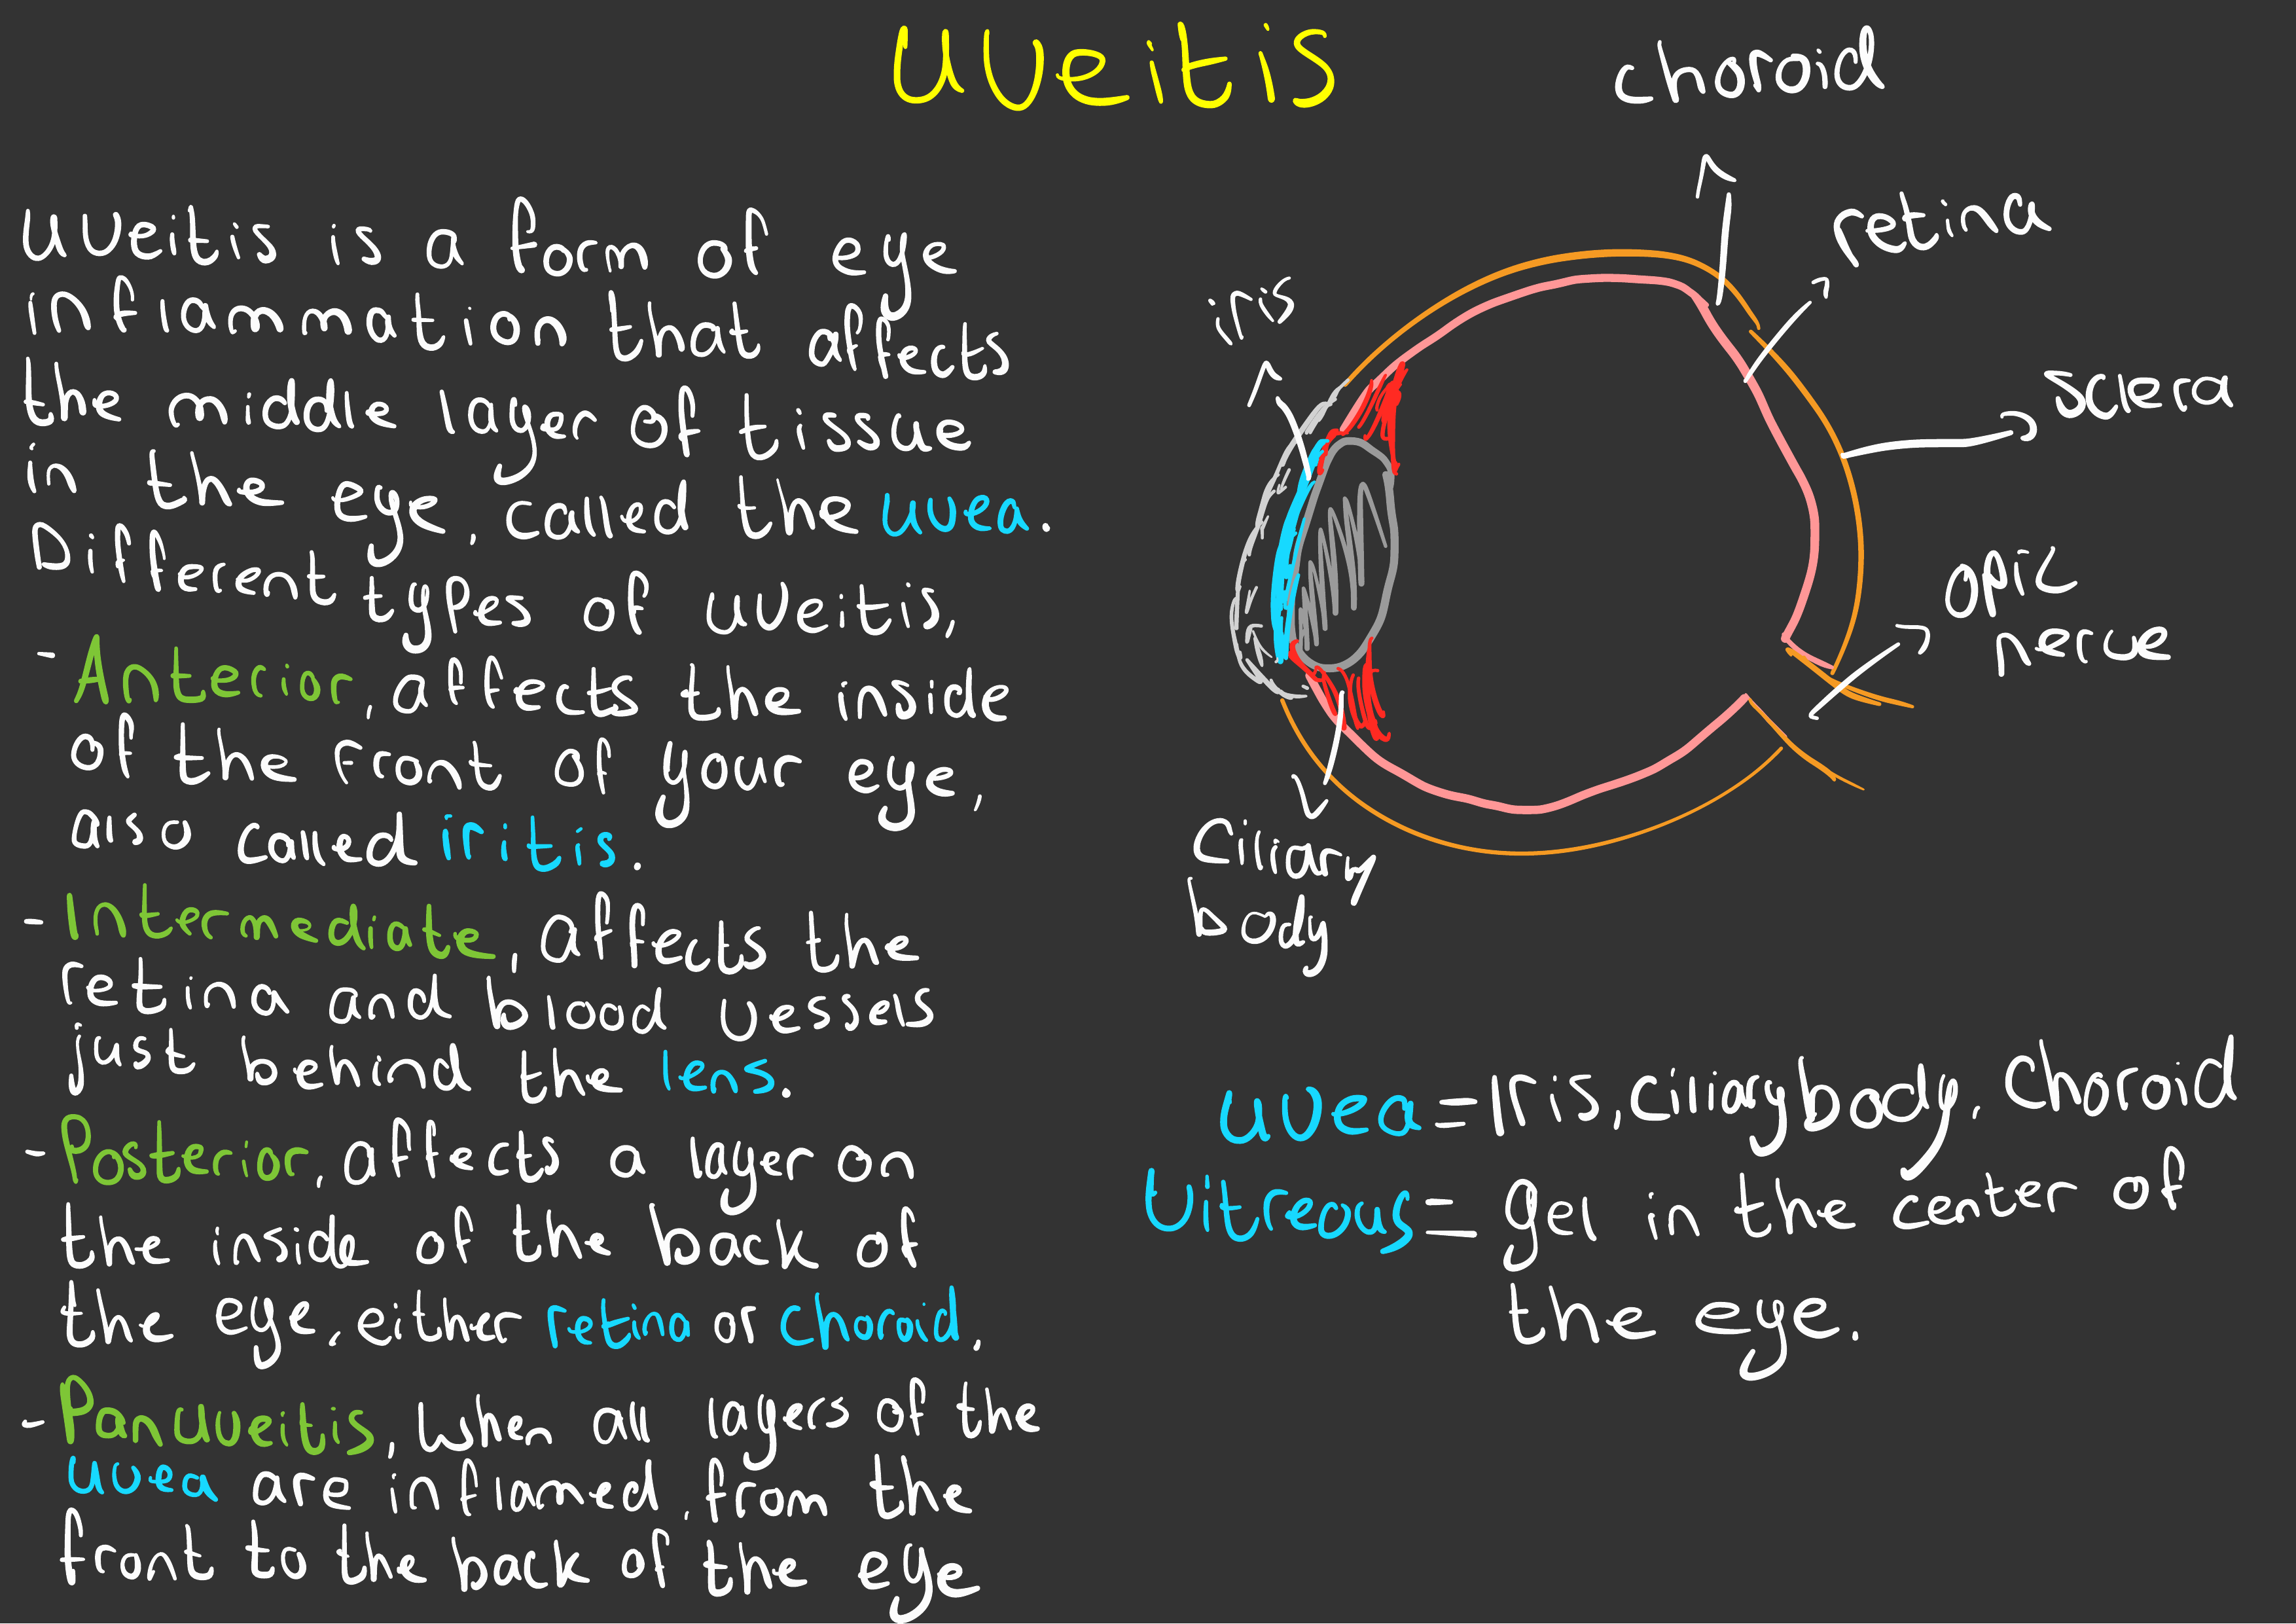 Uveitis
Uveitis is a form of eye
inflammation that affects
the middle layer of tissue
in the eye, called the uvea.
Different types of uveitis,
- Anterior, affects the inside
of the front of your eye,
also called iritis.
- Intermediate, affects the
retina and blood vessels
just behind the lens.
- Posterior, affects a layer on
the inside of the back of
the eye, either retina or choroid,
- Panuveitis, when all layers of the
uvea are inflamed, from the
front to the back of the eye
choroid
retina
iris
Sclera
opic
nerve
Ciliary
body
uvea = Iris, ciliary body, Choroid
Vitreous = gel in the center of
the eye.